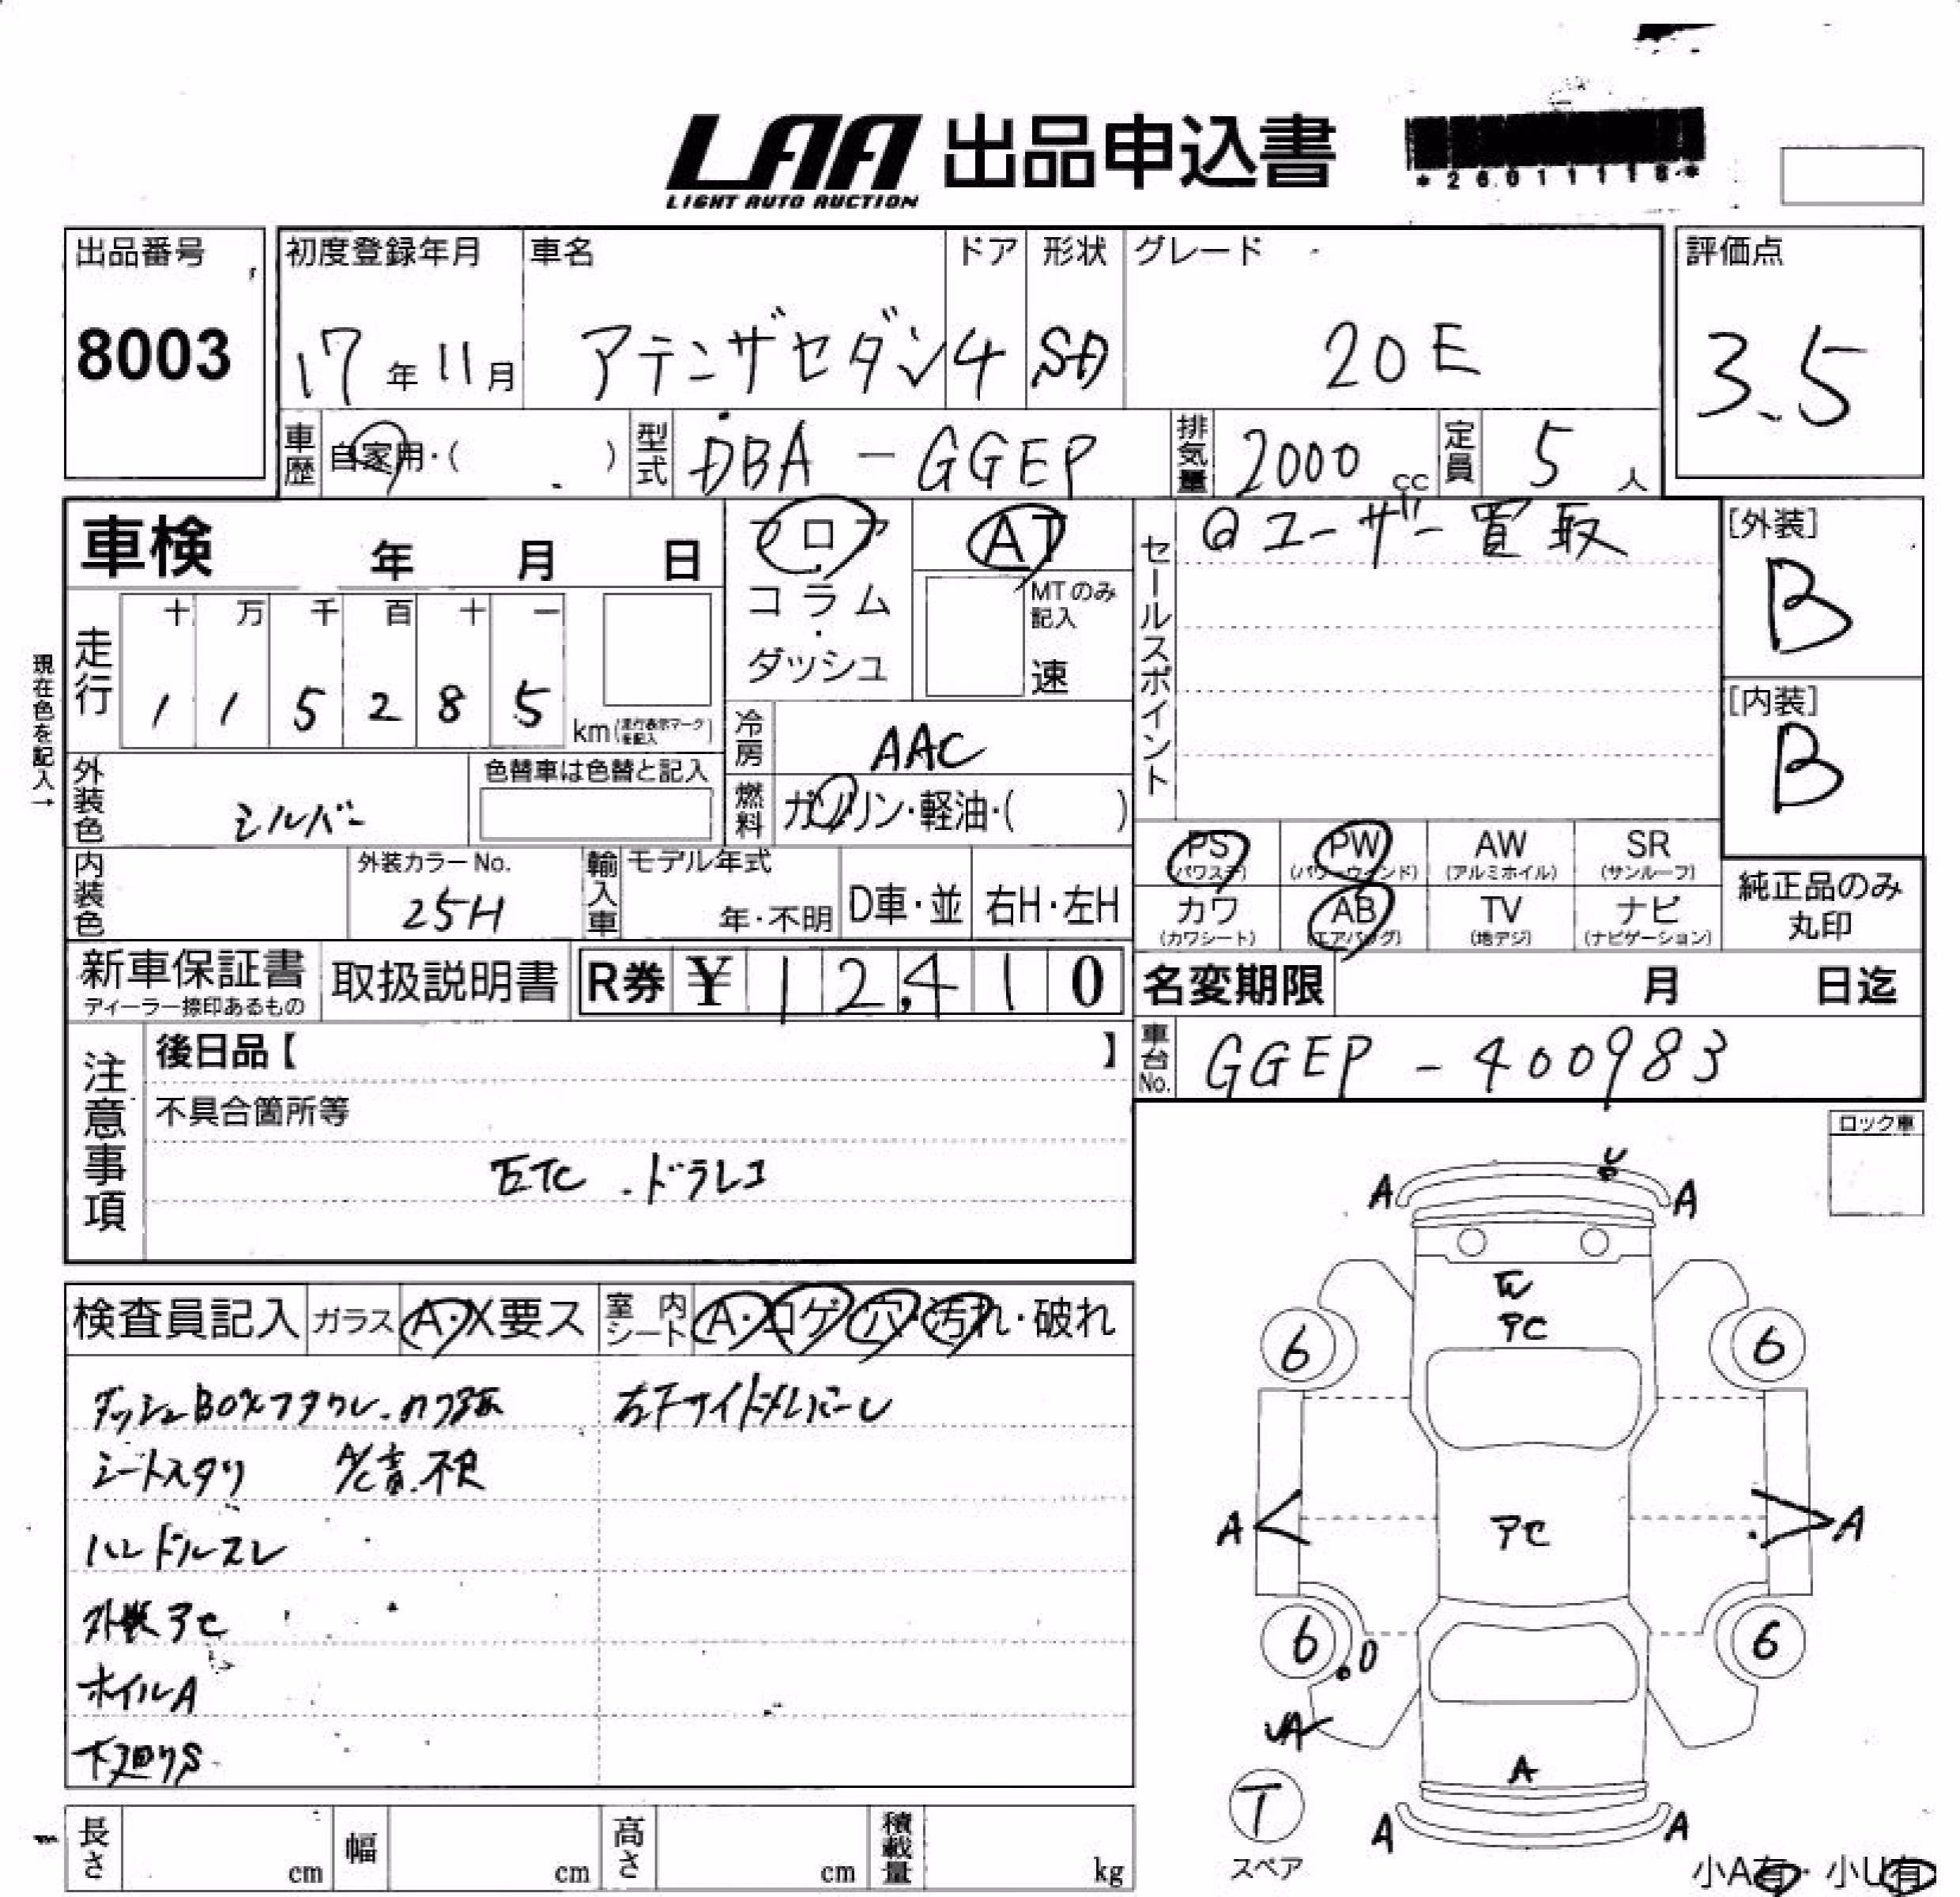 LAA 出品申込書
LIGHT AUTO AUCTION
*26011118*
出品番号
8003
初度登録年月
17年11月
車名
アテンザセダン
ドア
4
形状
SD
グレード
20E
評価点
3.5
車歴
自家用・( )
型式
DBA-GGEP
排気量
2000cc
定員
5人
車検 年 月 日
フロア
コラム
・
ダッシュ
AT
MTのみ記入
速
セールスポイント
@ユーザー買取
[外装]
B
[内装]
B
現在色を記入→
走行
十 万 千 百 十 一
1 1 5 2 8 5
km(走行表示マークを記入)
冷房
AAC
燃料
ガソリン・軽油・( )
外装色
シルバー
色替車は色替と記入
内装色
外装カラーNo.
25H
輸入車
モデル年式
年・不明
D車・並
右H・左H
PS
(パワステ)
PW
(パワーウインド)
AW
(アルミホイル)
SR
(サンルーフ)
カワ
(カワシート)
AB
(エアバッグ)
TV
(地デジ)
ナビ
(ナビゲーション)
純正品のみ
丸印
新車保証書
ディーラー捺印あるもの
取扱説明書
R券 ¥12,410
名変期限 月 日迄
車台No.
GGEP-400983
注意事項
後日品【 】
不具合箇所等
ETC.ドラレコ
ロック車
検査員記入
ガラス
A・X要ス
室内シート
A・コゲ・穴・汚れ・破れ
シートスタリ
ハンドルスレ
外装アセ
ホイルA
下廻りS
A U A
アセ
6 6
A アセ A
6 6
UA
A
T
スペア
A A
小A有・小U有
長さ cm
幅 cm
高さ cm
積載量 kg